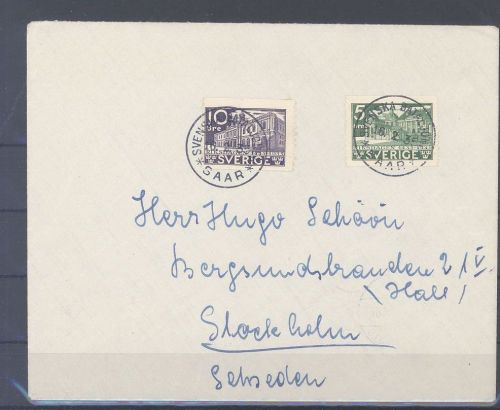 10
öre
SVERIGE
SVEN
GAAR
5
öre
SVERIGE
SVENSKA BATALJ
AAR
Herr Hugo Schöön
Bergsundsstranden 2/IV.
(Hall)
Stockholm
Schweden